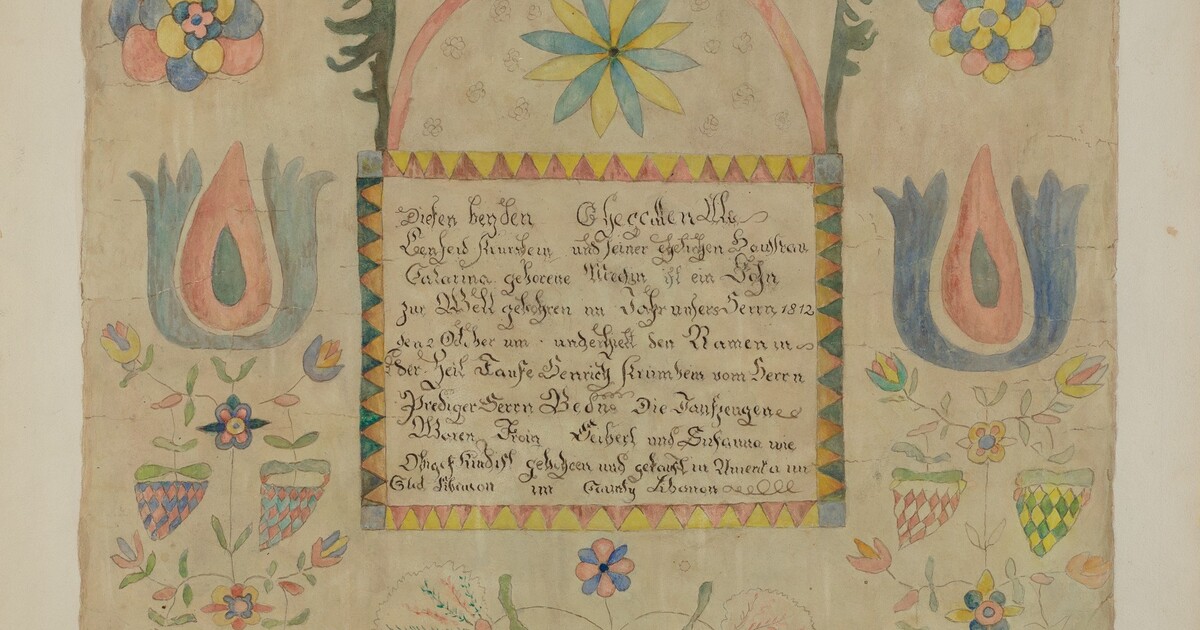 Diesen beyden Ehegatten Als
und seiner ehlichen Hausfrau
Catarina geborene ist ein Sohn
zur Welt gebohren im Jahr unsers Herrn 1812
den 2 October um underhielt den Namen in
der Heil Taufe Henrich vom Herrn
Prediger Herrn Die Taufzeugen
Waren Seibert und Susanna wie
Obiges Kind ist gebohren und getauft in America im
Stad Libanon im County Libanon